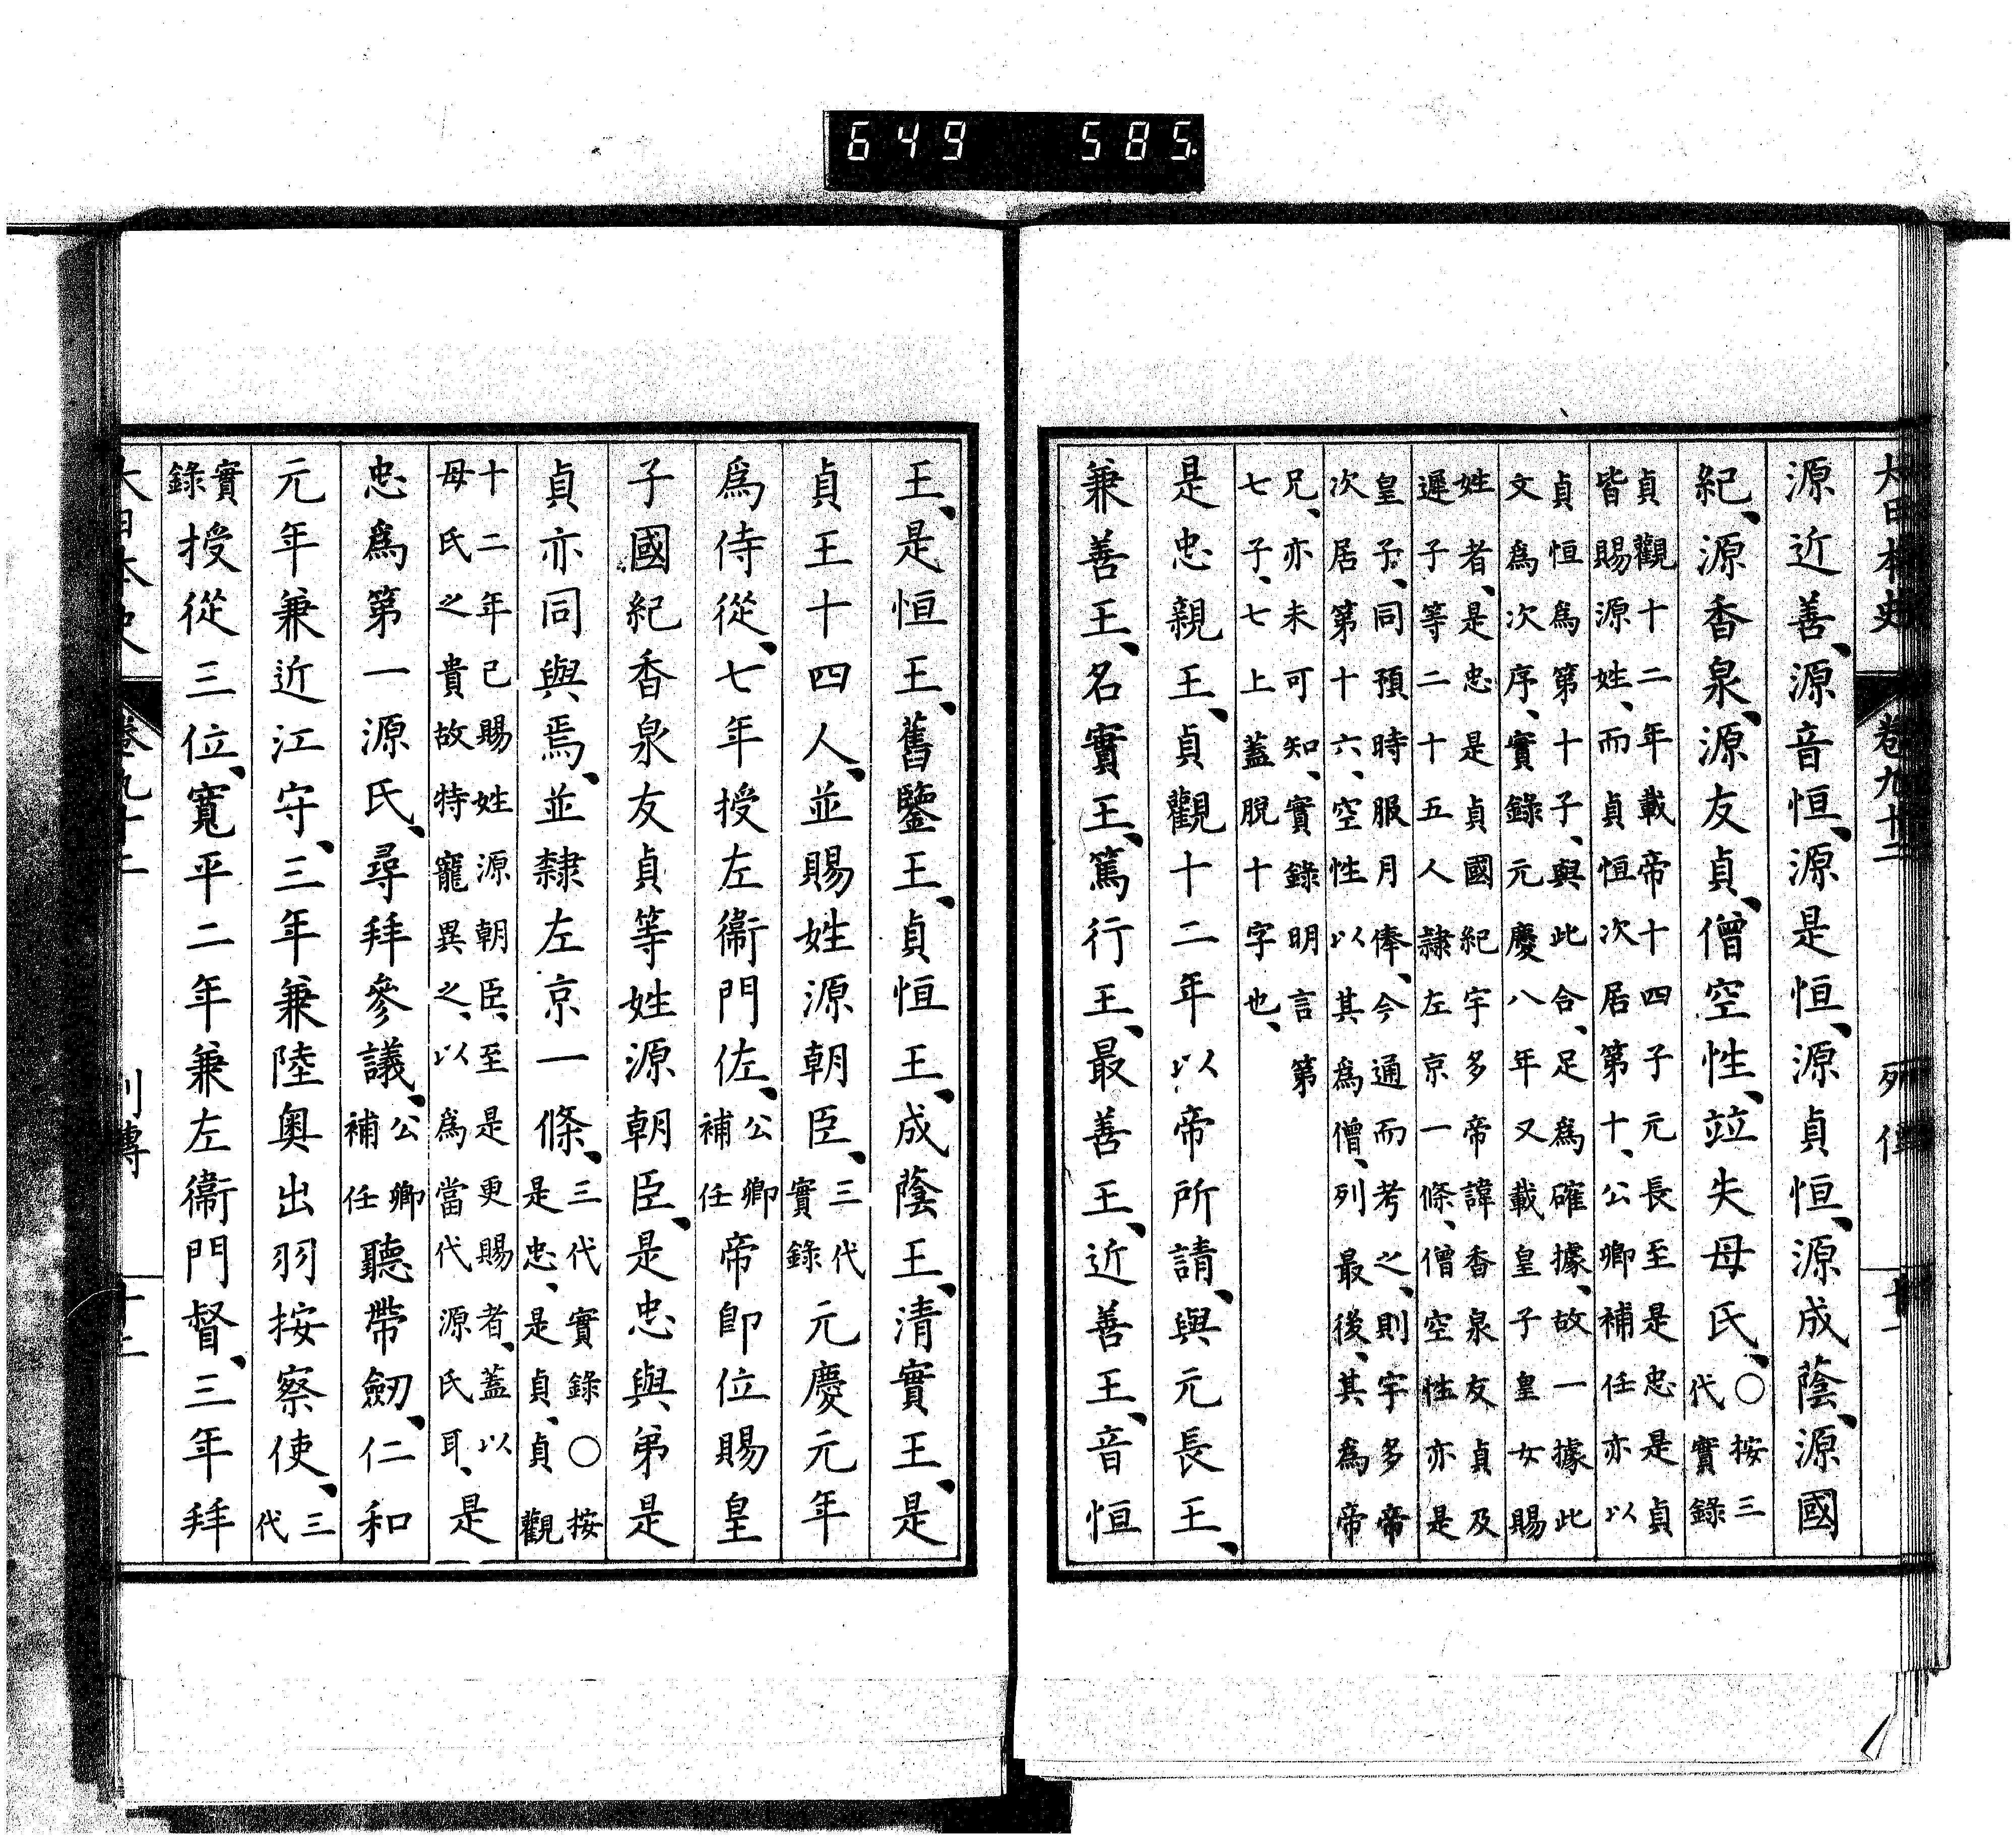 大日本史 卷九十二 列傳
源近善、源音恒、源是恒、源貞恒、源成蔭、源國
紀、源香泉、源友貞、僧空性、竝失母氏、○按三代實錄
貞觀十二年載帝十四子元長至是忠是貞
皆賜源姓、而貞恒次居第十、公卿補任亦以
貞恒爲第十子、與此合、足爲確據、故一據此
文爲次序、實錄元慶八年又載皇子皇女賜
姓者、是忠是貞國紀宇多帝諱香泉友貞及
遲子等二十五人隷左京一條、僧空性亦是
皇子、同預時服月俸、今通而考之、則宇多帝
次居第十六、空性以其爲僧、列最後、其爲帝
兄、亦未可知、實錄明言第
七子、七上蓋脫十字也、
是忠親王、貞觀十二年以帝所請、與元長王、
兼善王、名實王、篤行王、最善王、近善王、音恒
王、是恒王、舊鑒王、貞恒王、成蔭王、清實王、是
貞王十四人、並賜姓源朝臣、三代實錄元慶元年
爲侍從、七年授左衞門佐、公卿補任帝卽位賜皇
子國紀香泉友貞等姓源朝臣、是忠與弟是
貞亦同與焉、並隸左京一條、三代實錄○按是忠、是貞、貞觀
十二年已賜姓源朝臣、至是更賜者、蓋以
母氏之貴故特寵異之、以爲當代源氏耳、是
忠爲第一源氏、尋拜參議、公卿補任聽帶劒、仁和
元年兼近江守、三年兼陸奧出羽按察使、三代
實錄授從三位、寬平二年兼左衞門督、三年拜
大日本史 卷九十二 列傳 十二
649 585.